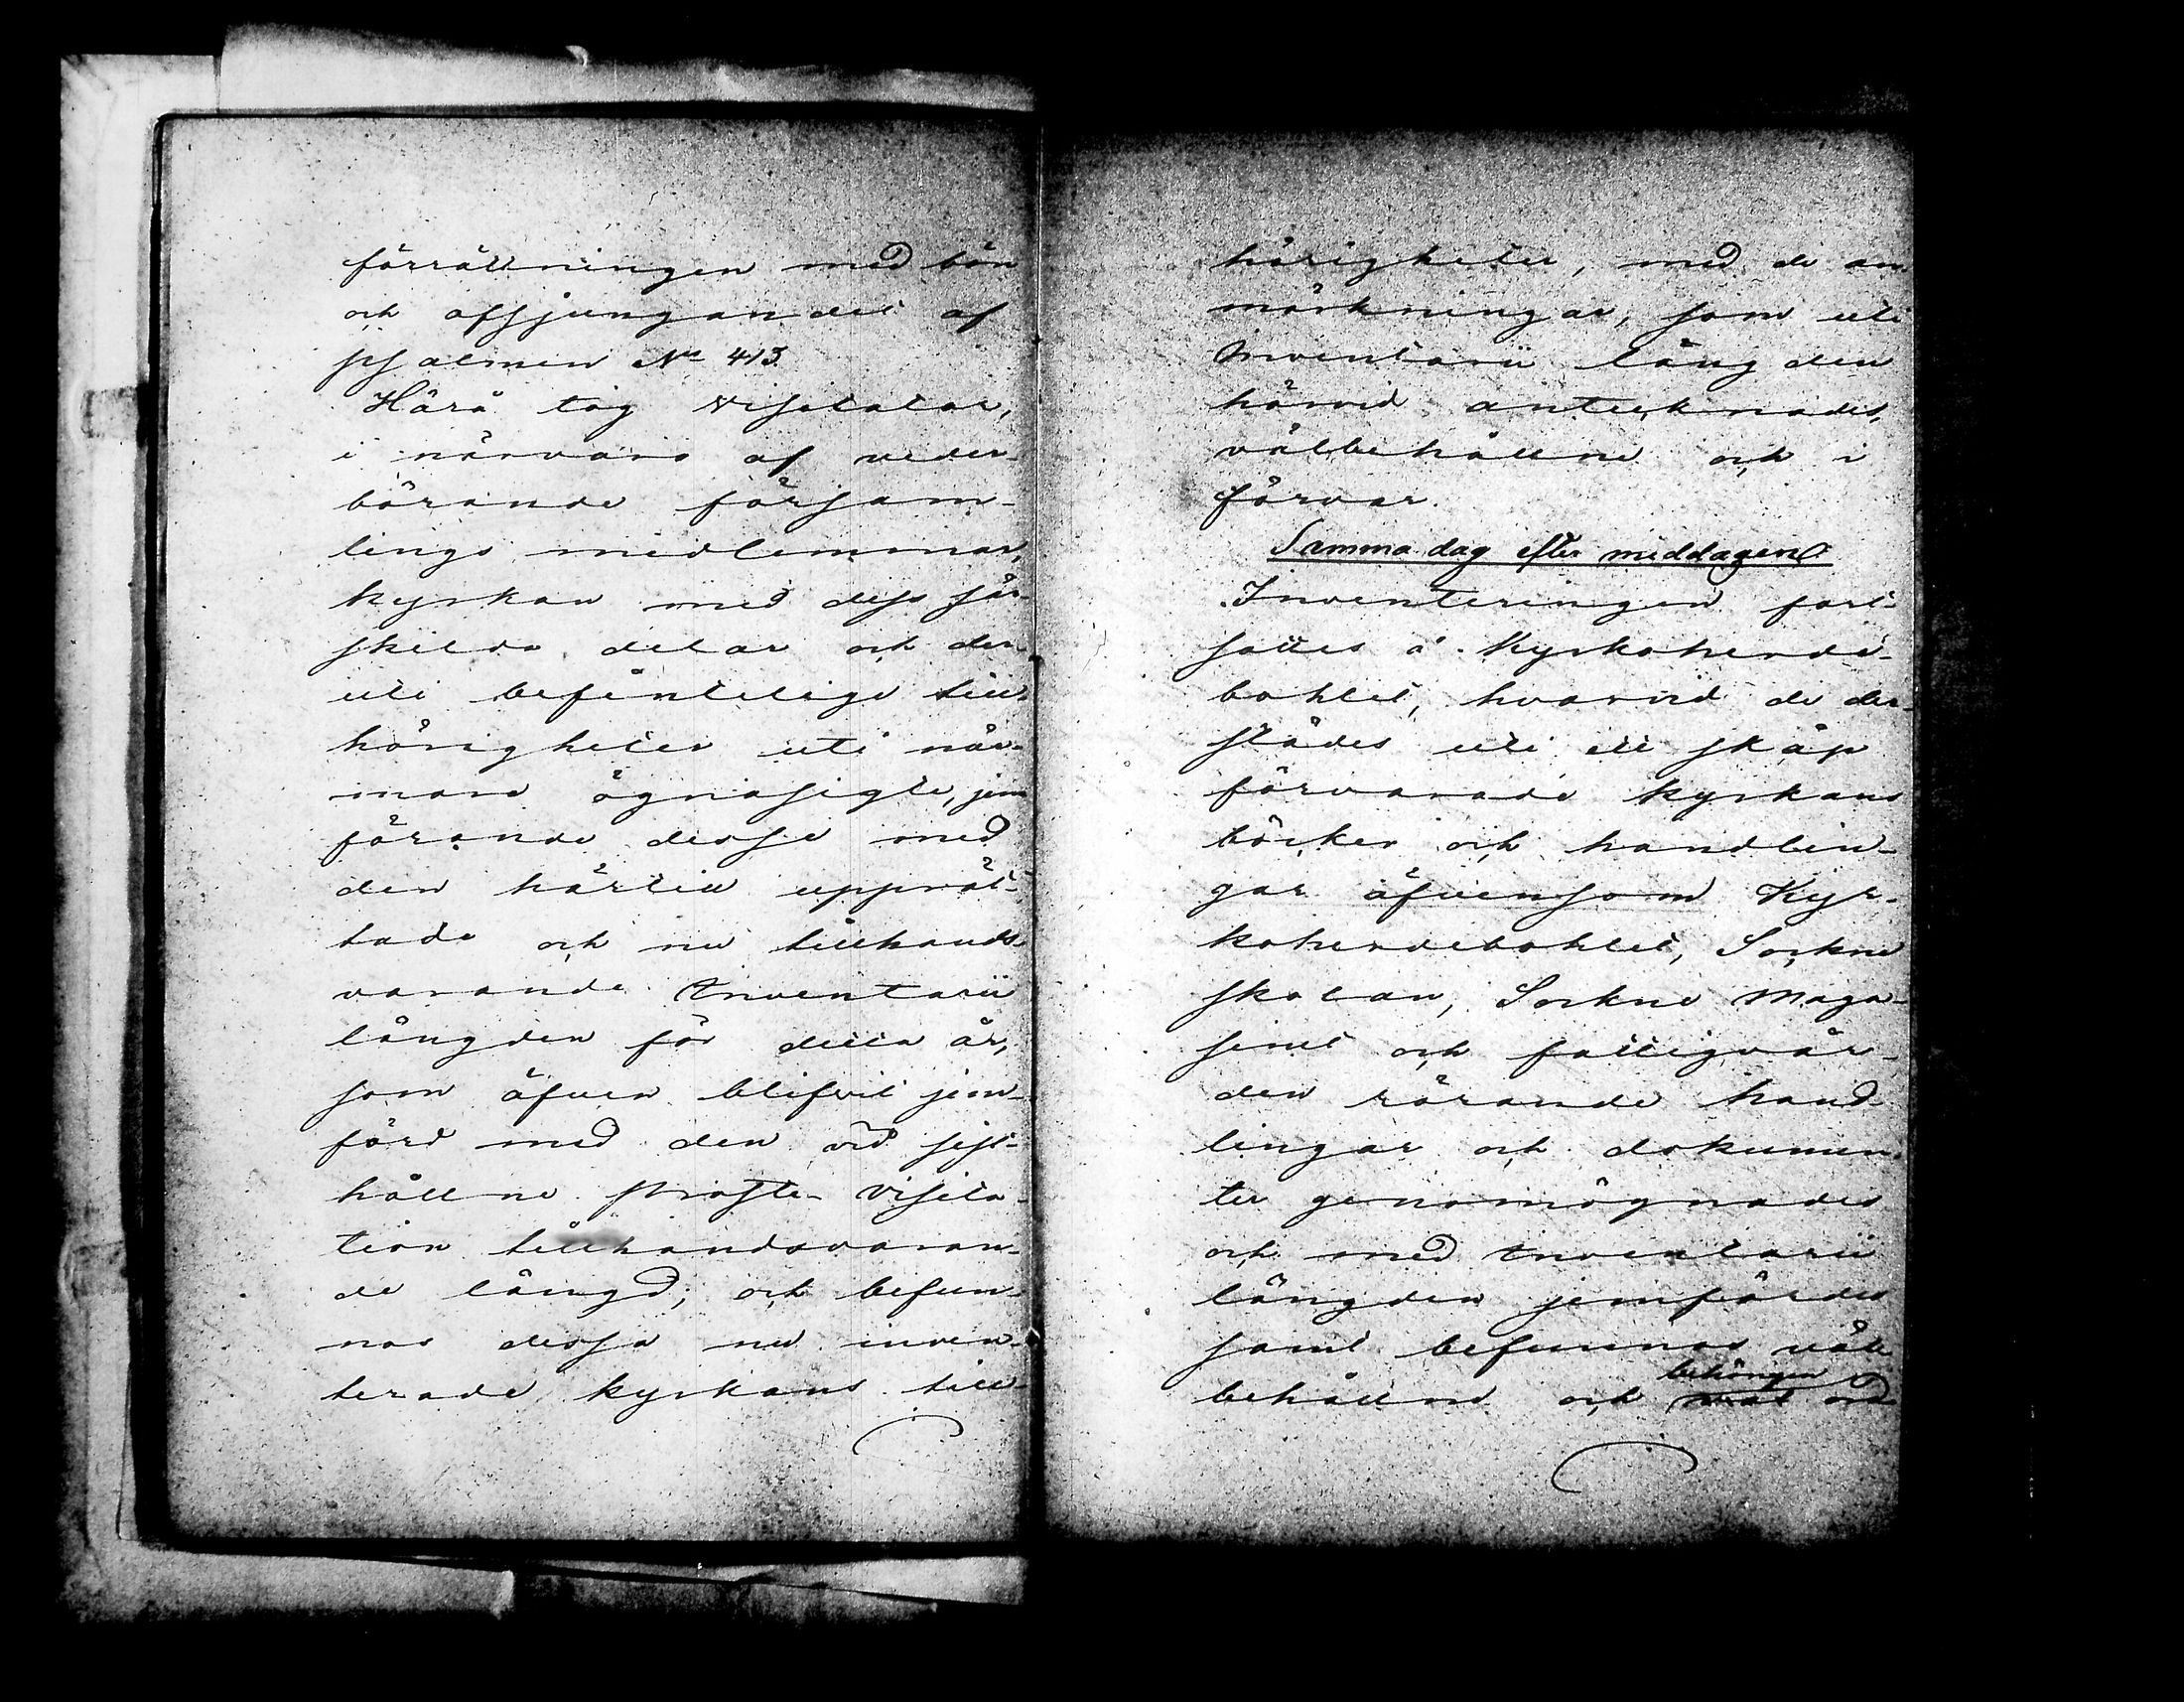 förrättningen med bön
och afsjungandet af
psalmen No 413.
Härå tog Visitator,
i närvaro af veder-
börande försam-
lings medlemmar,
kyrkan med dess sär-
skilda delar och der-
uti befintelige till-
hörigheter uti när-
mare ögnasigte, jem
förande desse med
den härtill upprät-
tade och nu tillhands-
varande Inventarii
längden för detta år,
som äfven blifvit jem-
förd med den vid sist-
hållne Prosts Visita-
tion tillhandsvaran-
de längd; och befun-
nos dessa nu inven-
terade kyrkans till-
hörigheter, med de an-
märkningar, som uti
Inventarii läng den
härvid antecknades,
välbehållne och i
förvar.
Samma dag efter middagen
Inventeringen fort-
sattes å Kyrkoherde-
bohlet, hvarvid de der-
städes uti ett skåp
förvarade kyrkans
böcker och handlin-
gar äfvensom Kyr-
koherdebohlet, Sockne
skolan, Sockne Maga-
sinet och fattigvår-
den rörande hand-
lingar och dokumen-
ter genomögnades
och med Inventarii
längden jemfördes
samt befunnos väl-
behörigen
behållne och wäl ord